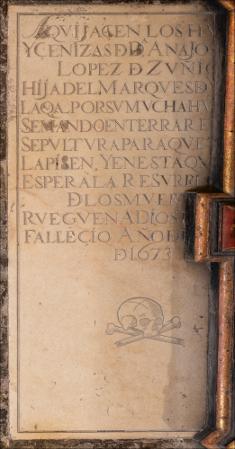 AQVI JACEN LOS H
Y CENIZAS D Dª ANA JO
LOPEZ Ð ZVÑI
HIJA DEL MARQVES D
LAQA. POR SV MVCHA HV
SE MANDO ENTERRAR E
SEPVLTVRA PARA QVE
LA PISEN, Y EN ESTA QV
ESPERA LA RESVRE
Ð LOS MVER
RVEGVEN A DIOS
FALLECIO AÑO D
Ð 1673